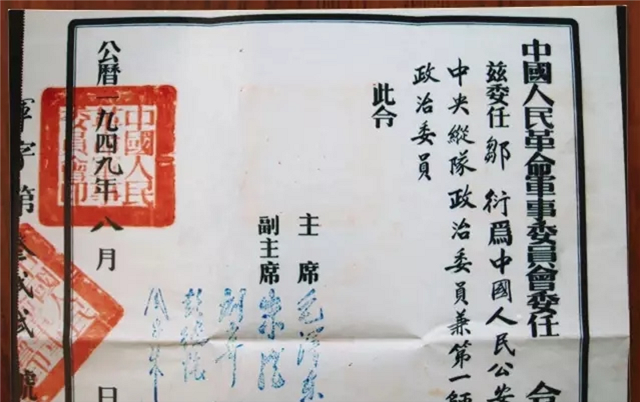 中國人民革命軍事委員會委任
令
茲委任鄒衍爲中國人民公安
中央縱隊政治委員兼第一師
政治委員
此令
主席毛澤東
副主席朱德
劉少奇
彭德懷
周恩來
公曆一九四九年八月
日
中國人民
革命軍事
委員會印
軍字第
號